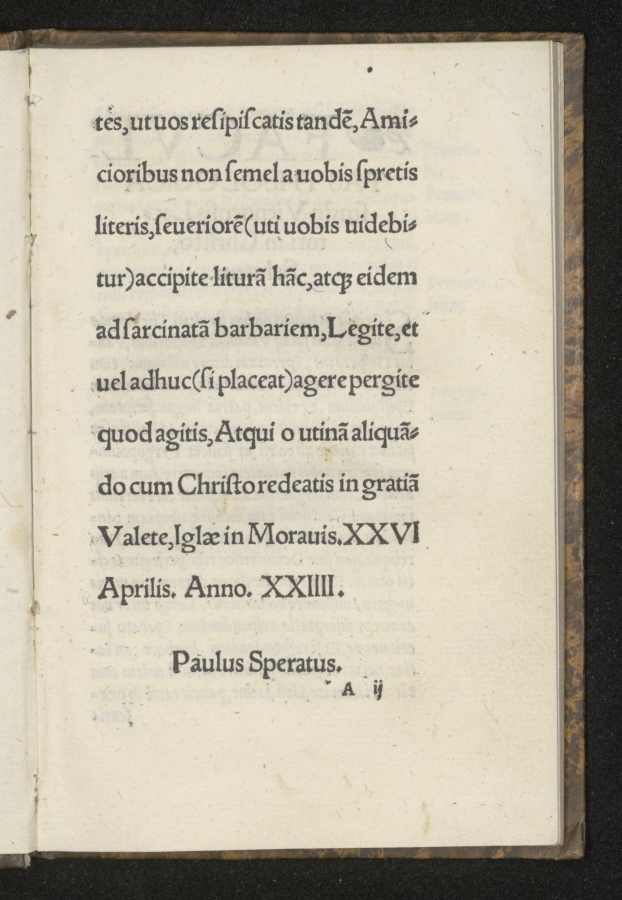 tes,ut uos reſipiſcatis tandē, Ami⸗
cioribus non ſemel a uobis ſpretis
literis,ſeueriorē(uti uobis uidebi⸗
tur)accipite liturā hāc,atqꝫ eidem
ad ſarcinatā barbariem,Legite,et
uel adhuc(ſi placeat)agere pergite
quod agitis, Atqui o utinā aliquā⸗
do cum Chriſto redeatis in gratiā
Valete,Iglæ in Morauis.XXVI
Aprilis. Anno. XXIIII.
Paulus Speratus.
A ij